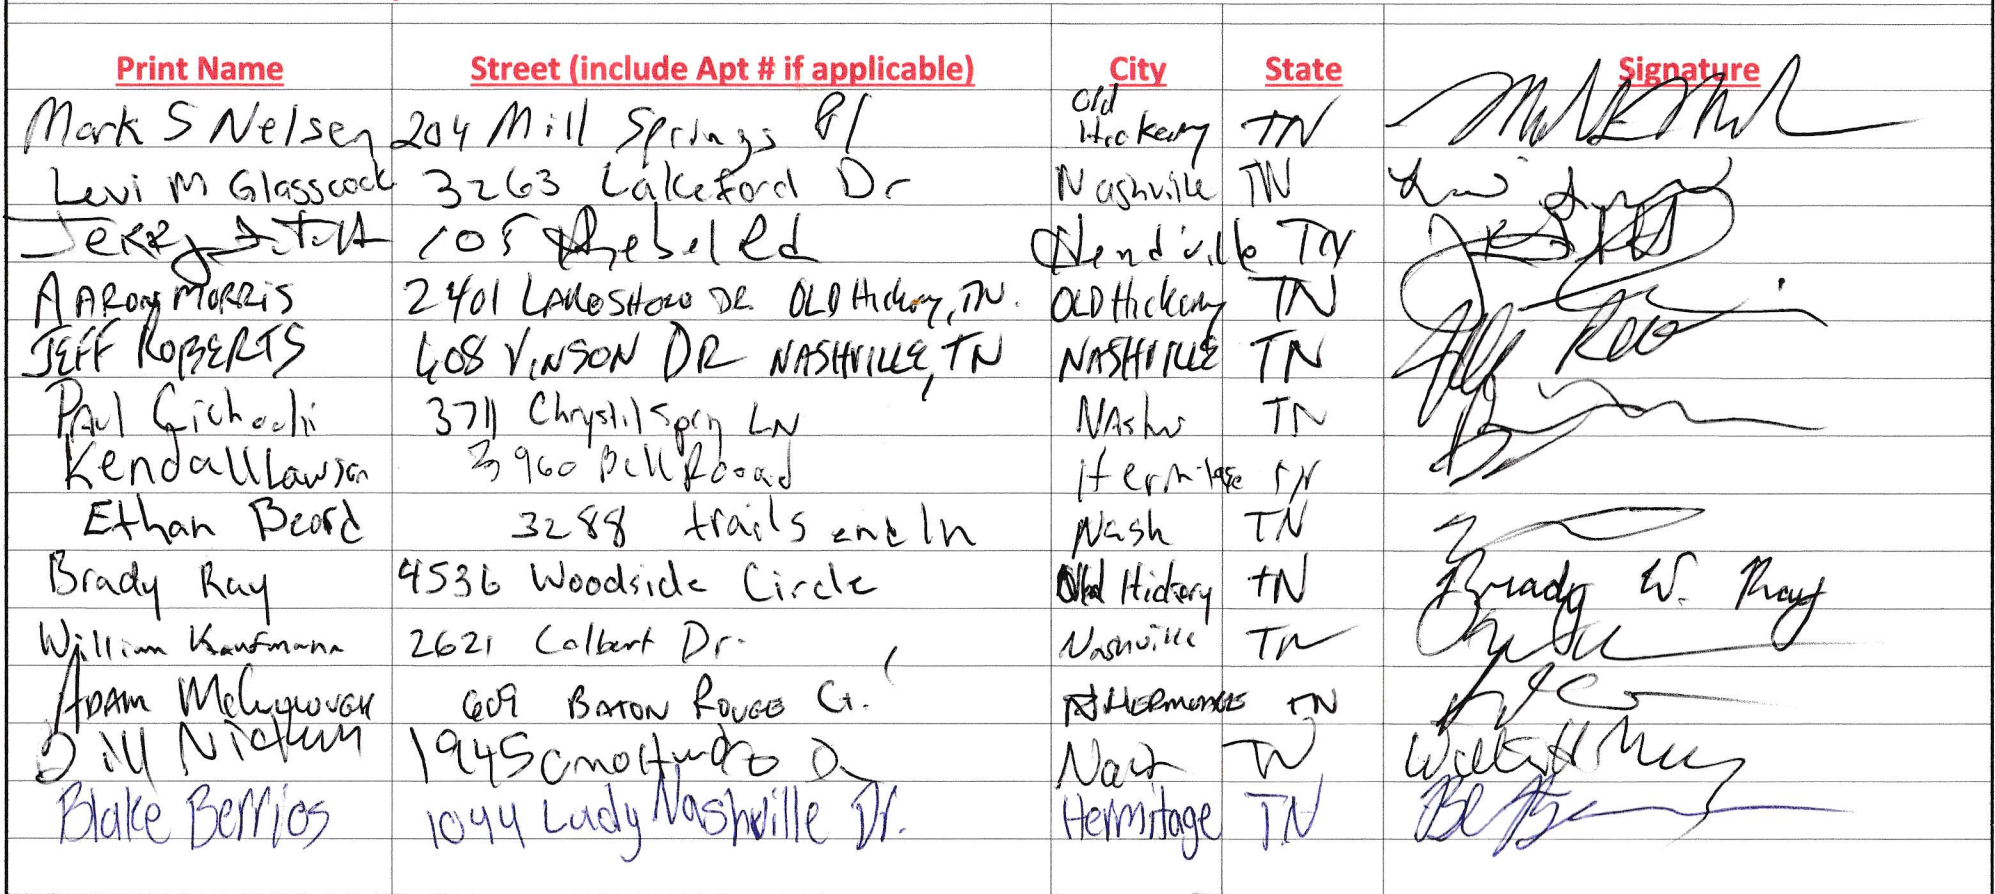 Print Name Street (include Apt # if applicable) City State Signature
Mark S Nelsen 204 Mill Springs Pl Old Hickory TN
Levi M Glasscock 3263 Lakeford Dr Nashville TN
Jerry 105 Rebel Rd Hend'ville TN
AARON MORRIS 2401 LAKESHORE DR. OLD Hickory, TN. OLD Hickory TN
JEFF ROBERTS 608 VINSON DR NASHVILLE, TN NASHVILLE TN Jeff
Paul 3711 LN TN
Kendall Lawson 3960 Bell Rooad Hermitage TN
Ethan Beard 3288 trails end ln Nash TN
Brady Ray 4536 Woodside Circle Old Hickory TN Brady W. Ray
William Kaufmann 2621 Colbert Dr. Nashville TN
ADAM 609 BATON ROUGE Ct. HERMITAGE TN
Bill 1945 TN
Blake Berrios 1044 Lady Nashville Dr. Hermitage TN